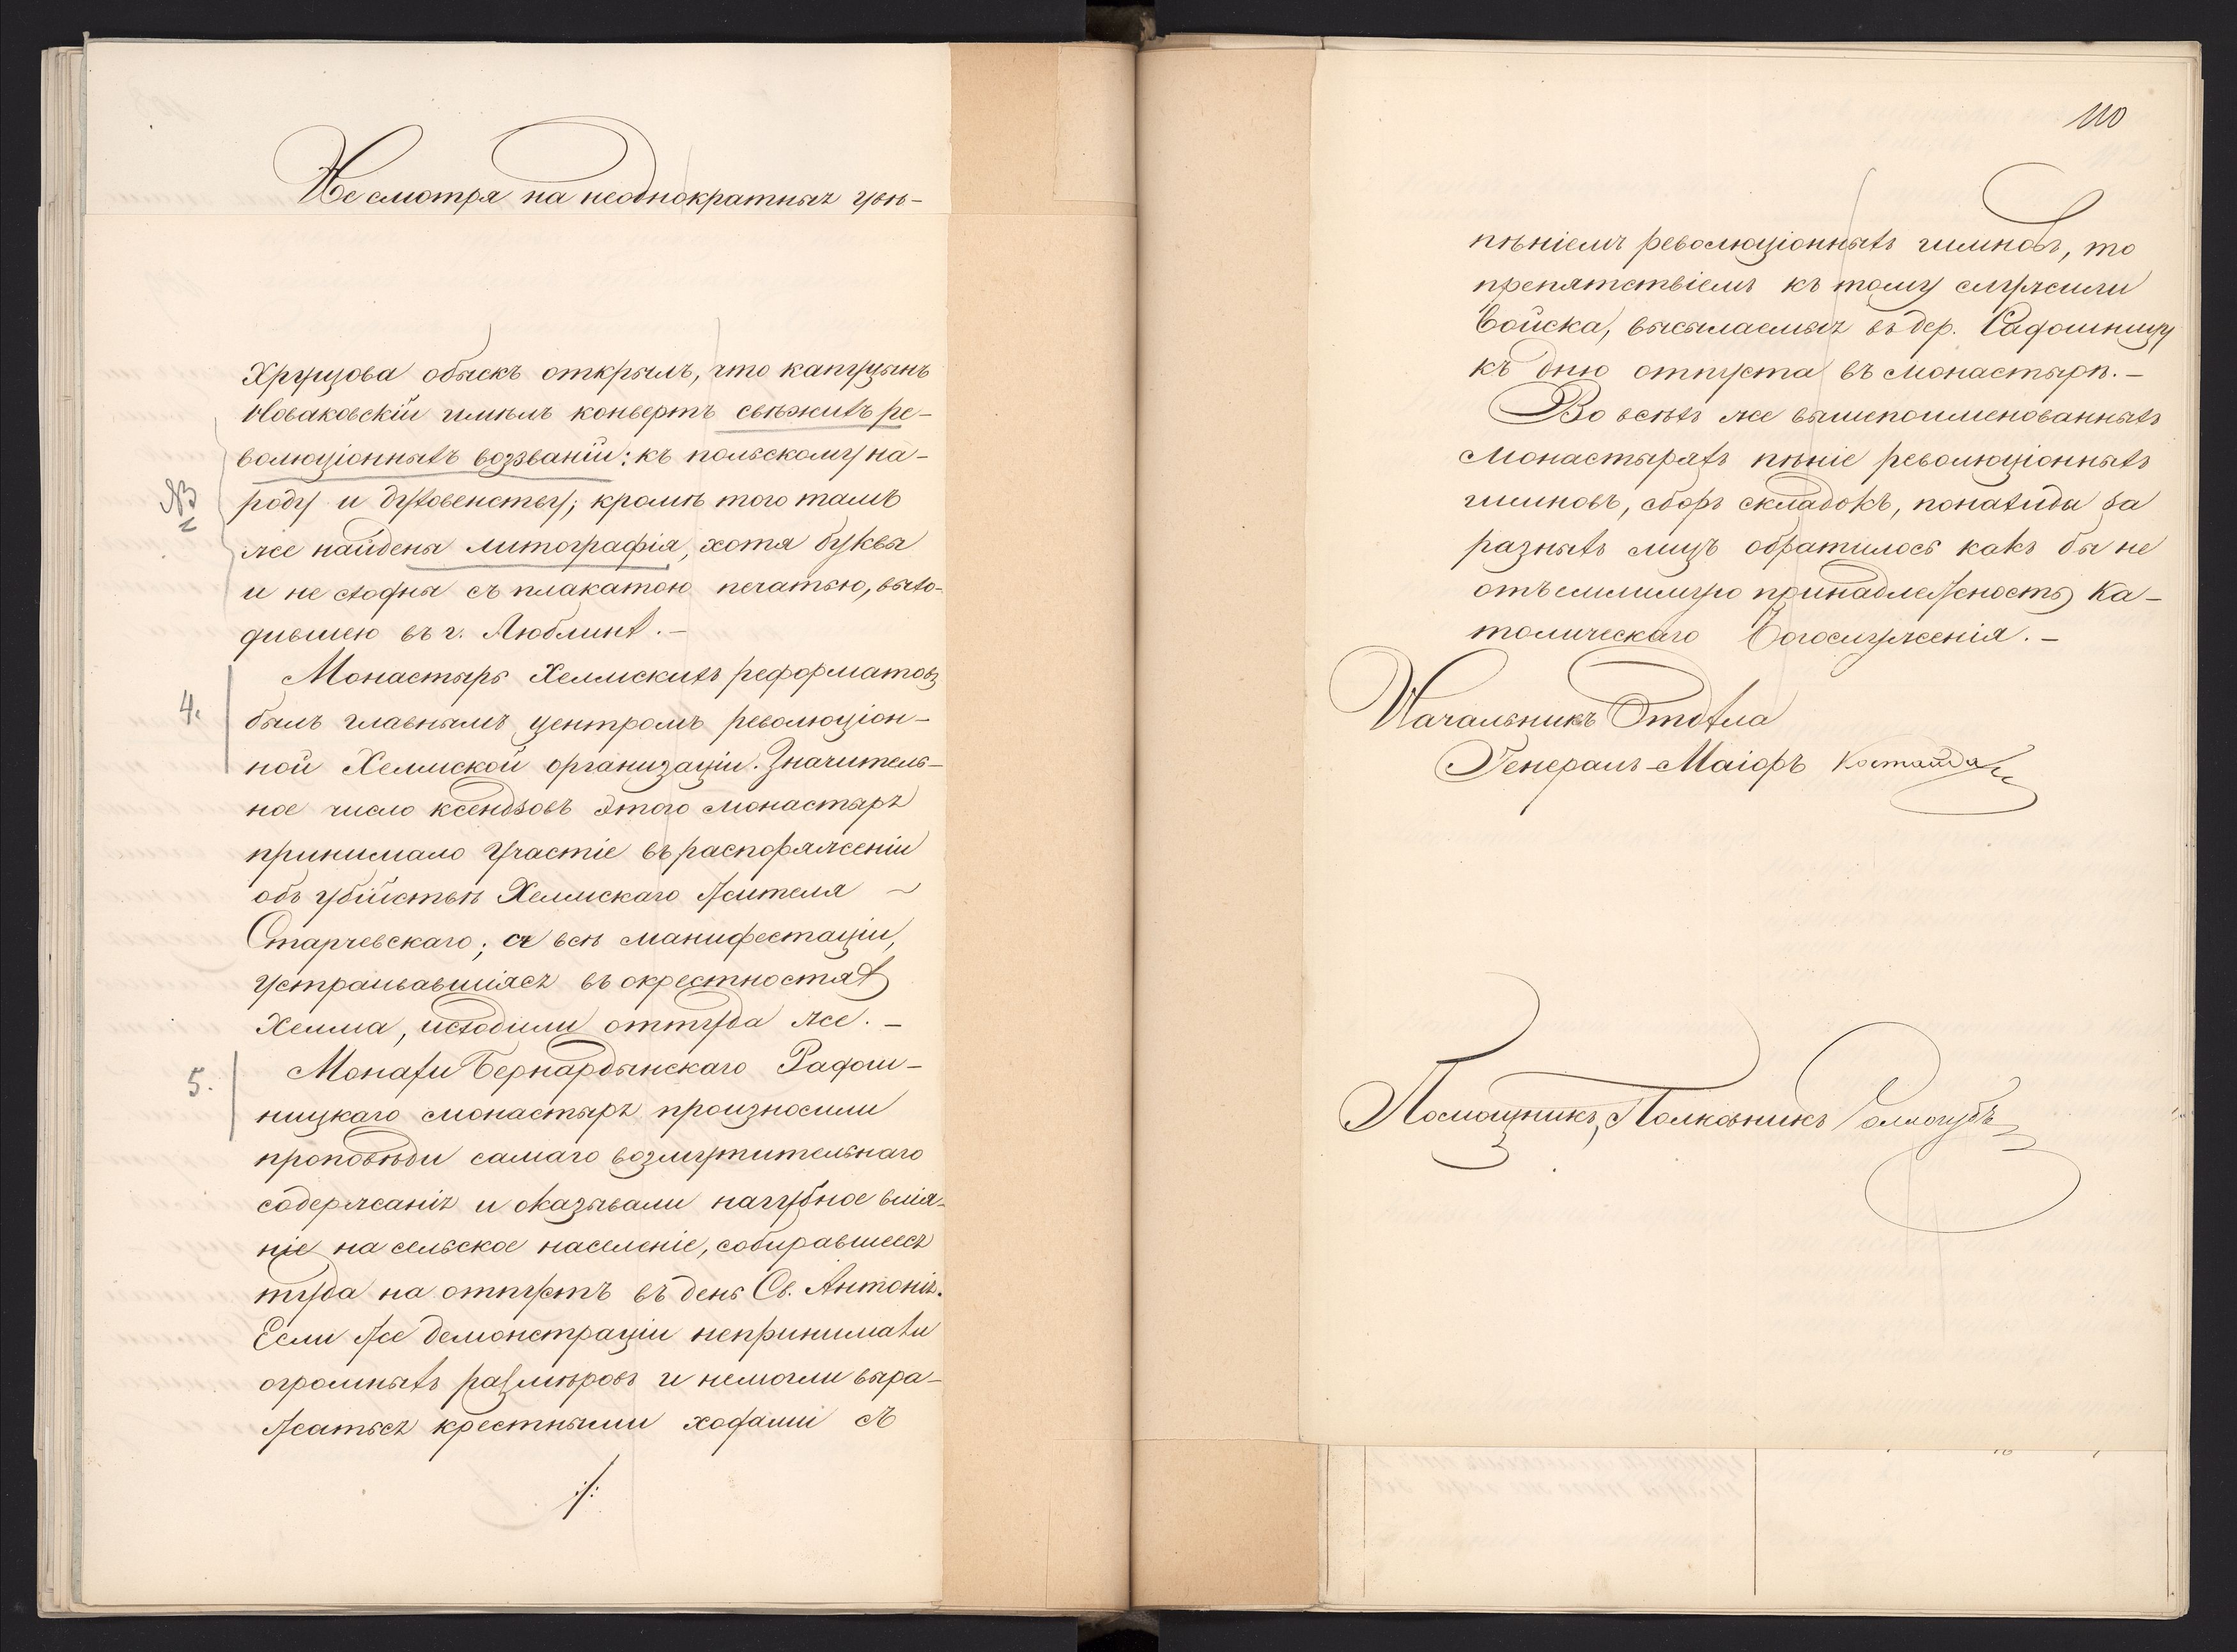 Не смотря на неоднократныя увѣ-
Хрущова обыскъ открылъ, что капуцынъ
Новаковскій имѣлъ конвертъ свѣжихъ ре-
волюціонныхъ воззваній: къ польскому на-
роду и духовенству; кромѣ того тамъ
№3
же найдена литографія, хотя буквы
и не сходны съ плакатою печатью, выхо-
дившею въ г. Люблинѣ. —
Монастырь Хелмскихъ реформатовъ
4.
былъ главнымъ центромъ революціон-
ной Хелмской организаціи. Значитель-
ное число ксендзовъ этого монастыря
принимало участіе въ распоряженіи
объ убійствѣ Хелмскаго жителя
Старчевскаго; а всѣ манифестаціи,
устраивавшіяся въ окрестностяхъ
Хелма, исходили оттуда же. —
Монахи Бернардынскаго Радош-
5.
ницкаго монастыря произносили
проповѣди самаго возмутительнаго
содержанія и оказывали пагубное влія-
ніе на сельское населеніе, собиравшееся
туда на отпустъ въ день Св. Антонія.
Если же демонстраціи непринимали
огромныхъ размѣровъ и немогли выра-
жаться крестными ходами съ
./.
110
пѣніемъ революціонныхъ гимновъ, то
препятствіемъ къ тому служили
войска, высылаемыя въ дер. Радошницу
къ дню отпуста въ монастырѣ. —
Во всѣхъ же вышепоименованныхъ
монастыряхъ пѣніе революціонныхъ
гимновъ, сборъ складокъ, понахиды за
разныхъ лицъ обратилось какъ бы не
отъемлимую принадлежность Ка-
толическаго Богослуженія. —
Начальникъ Отдѣла
Генералъ-Маіоръ Костанда
Помощникъ, Полковникъ